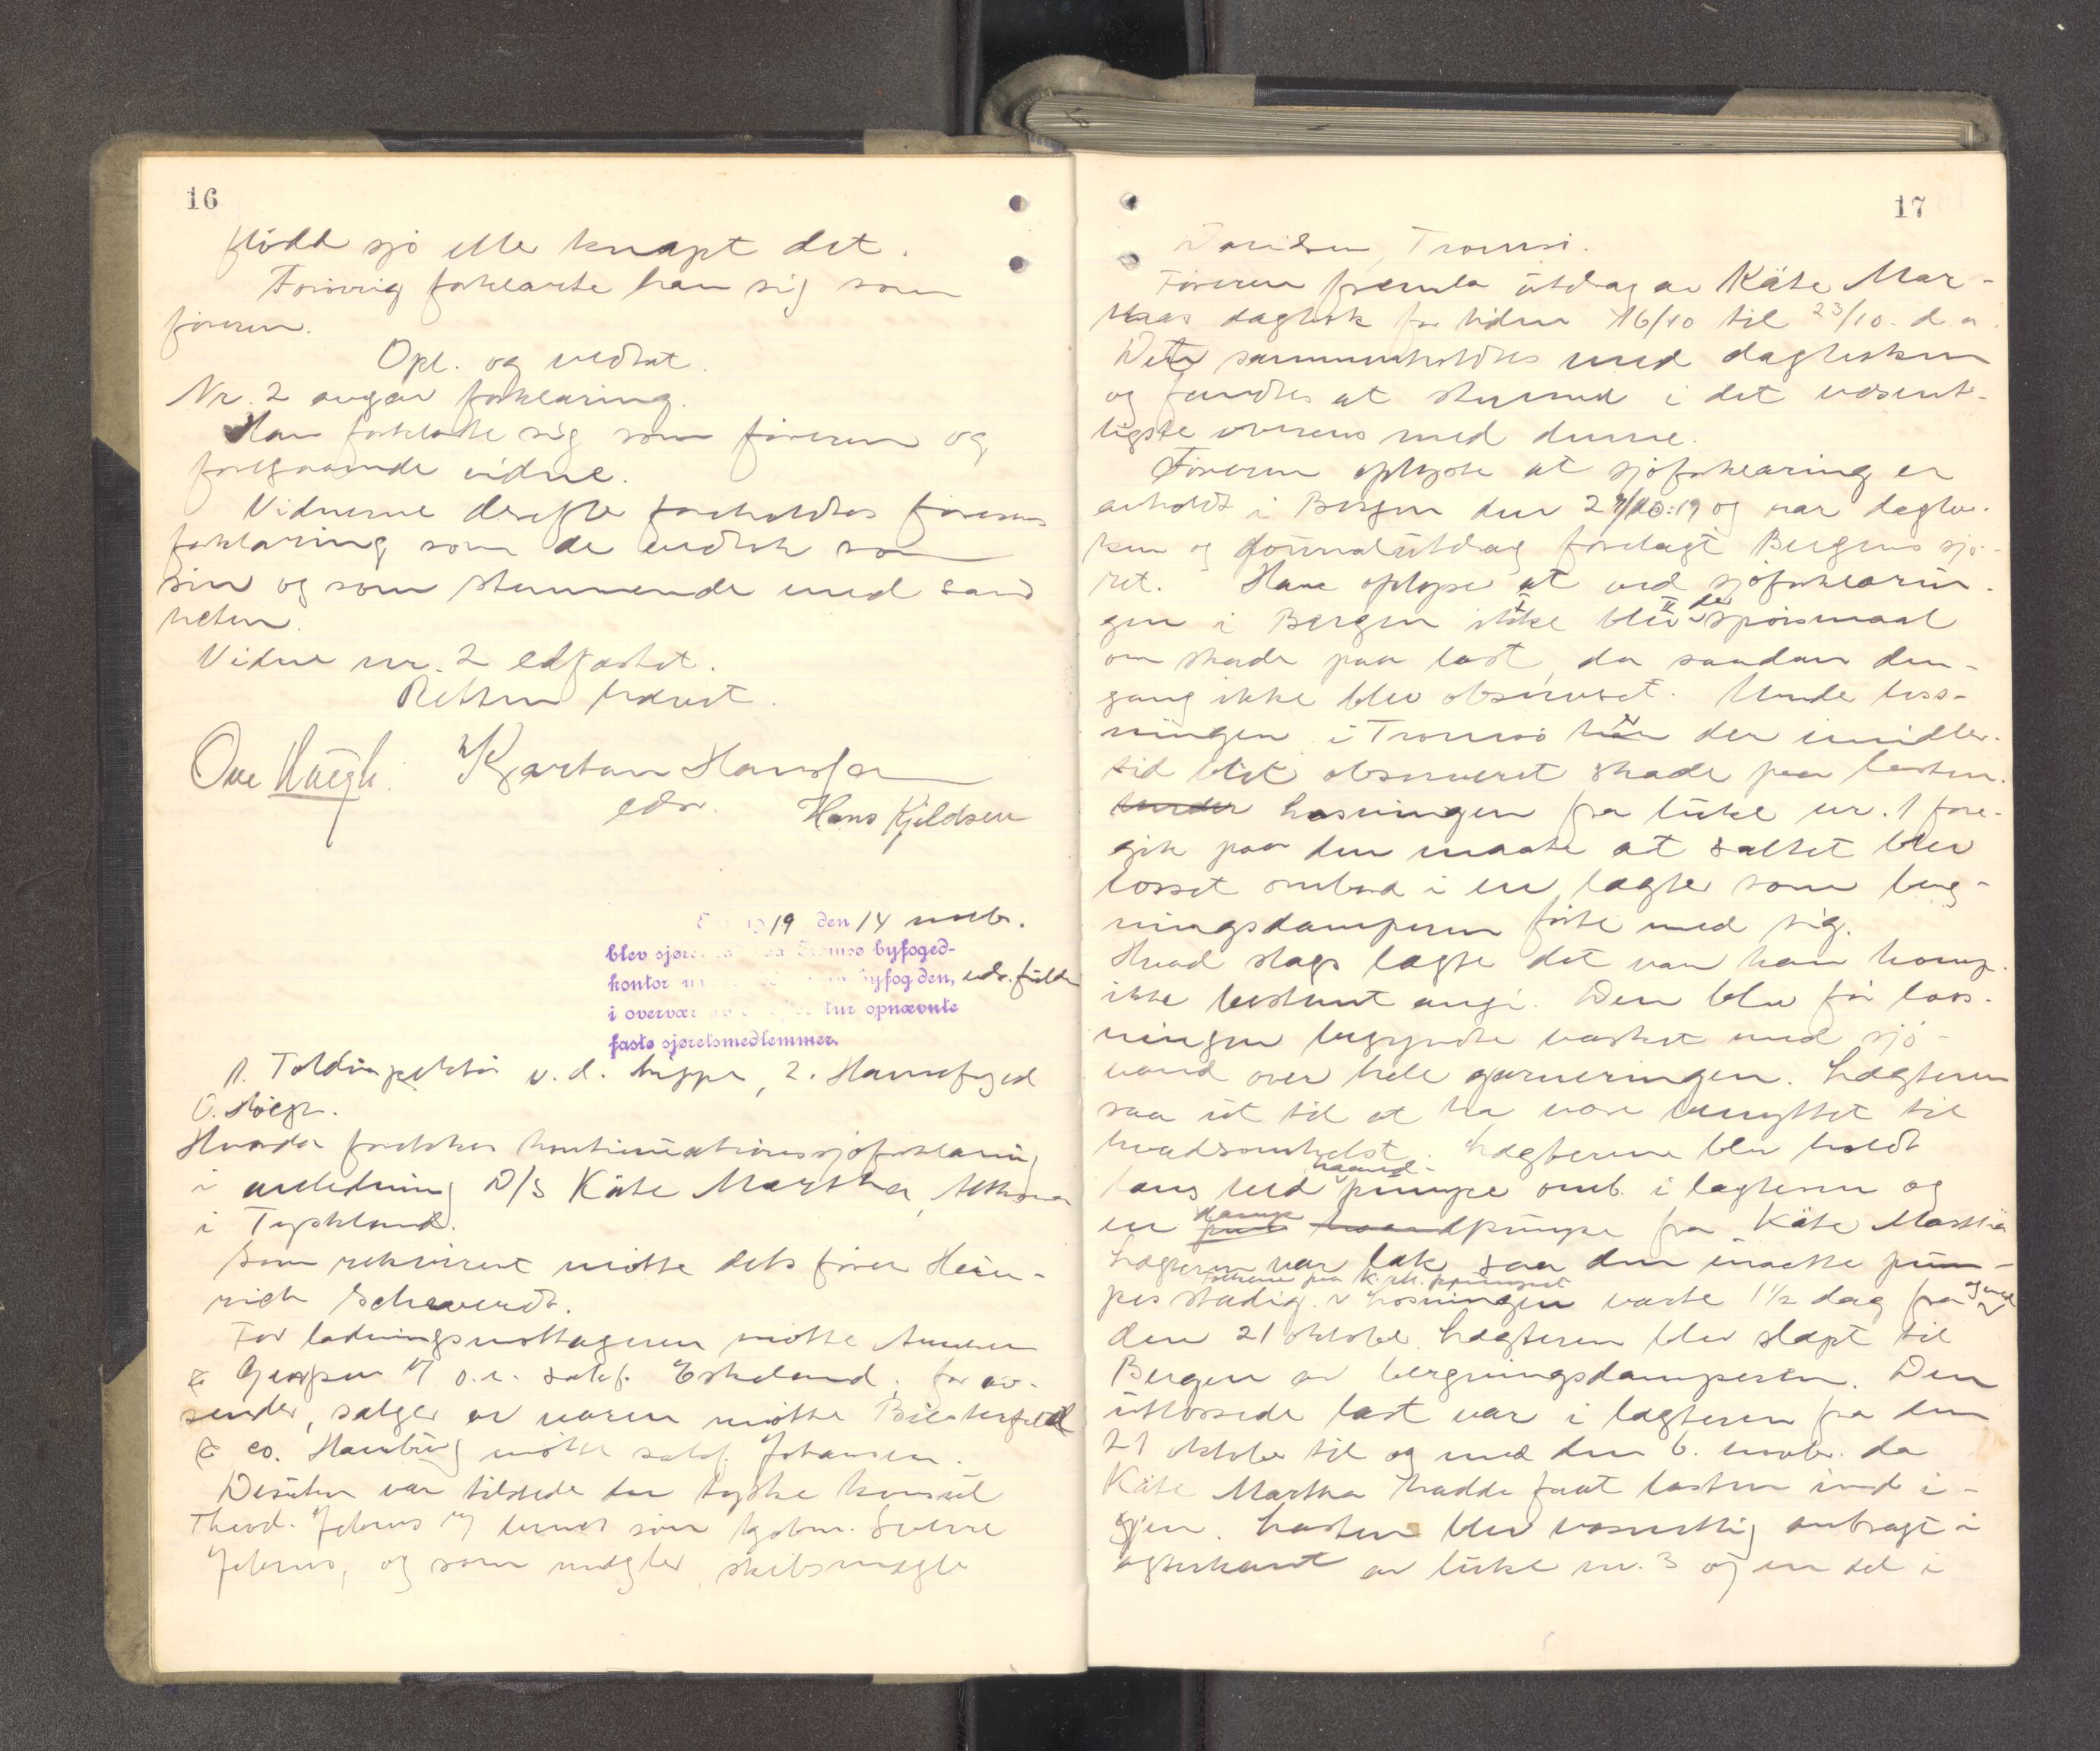 16
flödd sjö eller knapt det.
Forövrig forklarte han sig som
föreren.
Opl. og vedtat.
Nr. 2 avgav forklaring.
Han forklarte sig som föreren og
foregaaende vidne.
Vidnerne derefter foreholdtes förerens
forklaring som de vedtok som
sin og som stemmende med sand
heten.
Vidne nr. 2 edfæstet.
Retten hævet.
Ove Höegh. Kjartan Hansen
edsv. Hans Kjeldsen
19 den 14 novb.
blev sjøret Tromsø byfoged-
kontor byfogden, eds. fuldm
i overvær opnævnte
faste sjøretsmedlemmer.
1. Toldinspektör v. d. Lippe, 2. Havnefoged
O. Höegh.
Hvorda foretokes kontinuationssjöforklaring
i anledning D/S Käte Martha, Altona
i Tyskland.
Som rekvirent mötte dets förer Hein-
rich
For ladningsmottageren mötte
& o.r. sakf. Eskeland, for av-
sender, sælger av varen mötte Biesterfeld
& co. Hamburg mötte sakf. Johansen.
Desuten var tilstede den tyske konsul
Theod. og hennes sön Sverre
og som mægler skibsmægler
17
Davidsen, Tromsö.
Föreren fremla utdrag av Käte Mar-
thas dagbok for tiden 16/10 til 23/10 d.a.
Dette sammenholdtes med dagboken
og fandtes at stemme i det væsent-
ligste overens med denne.
Föreren oplyste at sjöforklaring er
avholdt i Bergen den 27/10.19 og var dagbo-
ken og journalutdrag forelagt Bergens sjö-
ret. Han oplyser at ved sjöforklarin-
gen i Bergen ikke blev der spörsmaal
om skade paa last, da saadan den-
gang ikke blev observeret. Under loss-
ningen i Tromsö er der imidler-
tid blit observeret skade paa lasten.
Under Losningen fra luke nr. 1 fore-
gik paa den maate at saltet blev
losset ombord i en lægter som berg-
ningsdamperen förte med sig.
Hvad slags lægter det var kan komp.
ikke bestemt angi. Den blev för loss-
ningen begyndte vasket med sjö-
vand over hele garneringen. Lægteren
saa ut til at ha været benyttet til
hvadsomhelst. Lægteren blev holdt
læns med haand-pumpe omb. i lægteren og
en damp pumpe fra Käte Martha
Lægteren var læk saa den maatte pum-
pes stadig. Losningen varte 1½ dag fra og med
den 21 oktober. Lægteren blev slæpt til
Bergen av bergningsdamperen. Den
utlossede last var i lægteren fra den
21 oktober til og med den 6. novbr. da
Käte Martha hadde faat lasten ind i-
gjen. Lasten blev væsentlig anbragt i
agterkant av luke nr. 3 og en del i